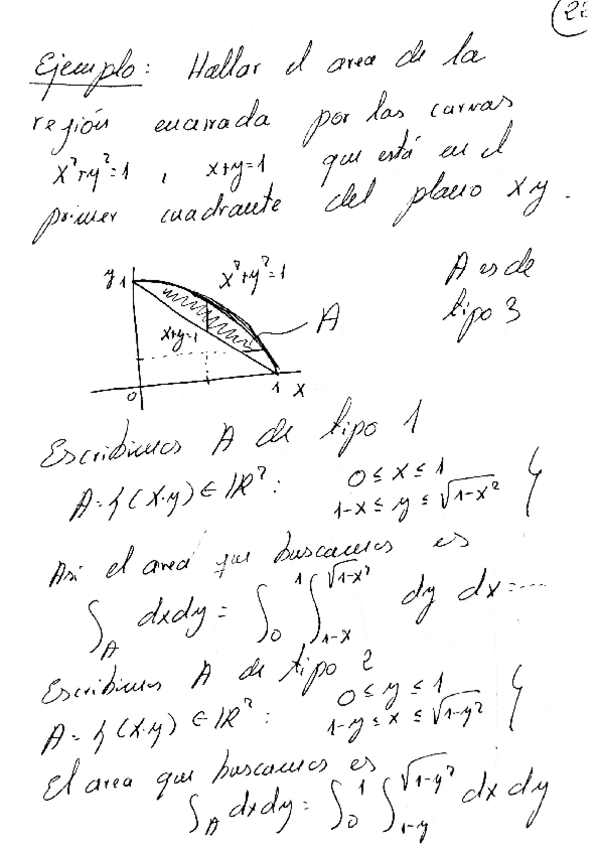 22
Ejemplo: Hallar el area de la
región encerrada por las curvas
x²+y²=1 , x+y=1 que está en el
primer cuadrante del plano xy.
y 1 x²+y²=1 A es de
x+y=1 A tipo 3
0 1 x
Escribimos A de tipo 1
A={(x,y)∈ℝ²: 0≤x≤1
1-x≤y≤√1-x² }
Asi el area que buscamos es
∫_A dxdy = ∫_0^1 ∫_{1-x}^{√1-x²} dy dx=...
Escribimos A de tipo 2
A={(x,y)∈ℝ²: 0≤y≤1
1-y≤x≤√1-y² }
El area que buscamos es
∫_A dxdy = ∫_0^1 ∫_{1-y}^{√1-y²} dx dy